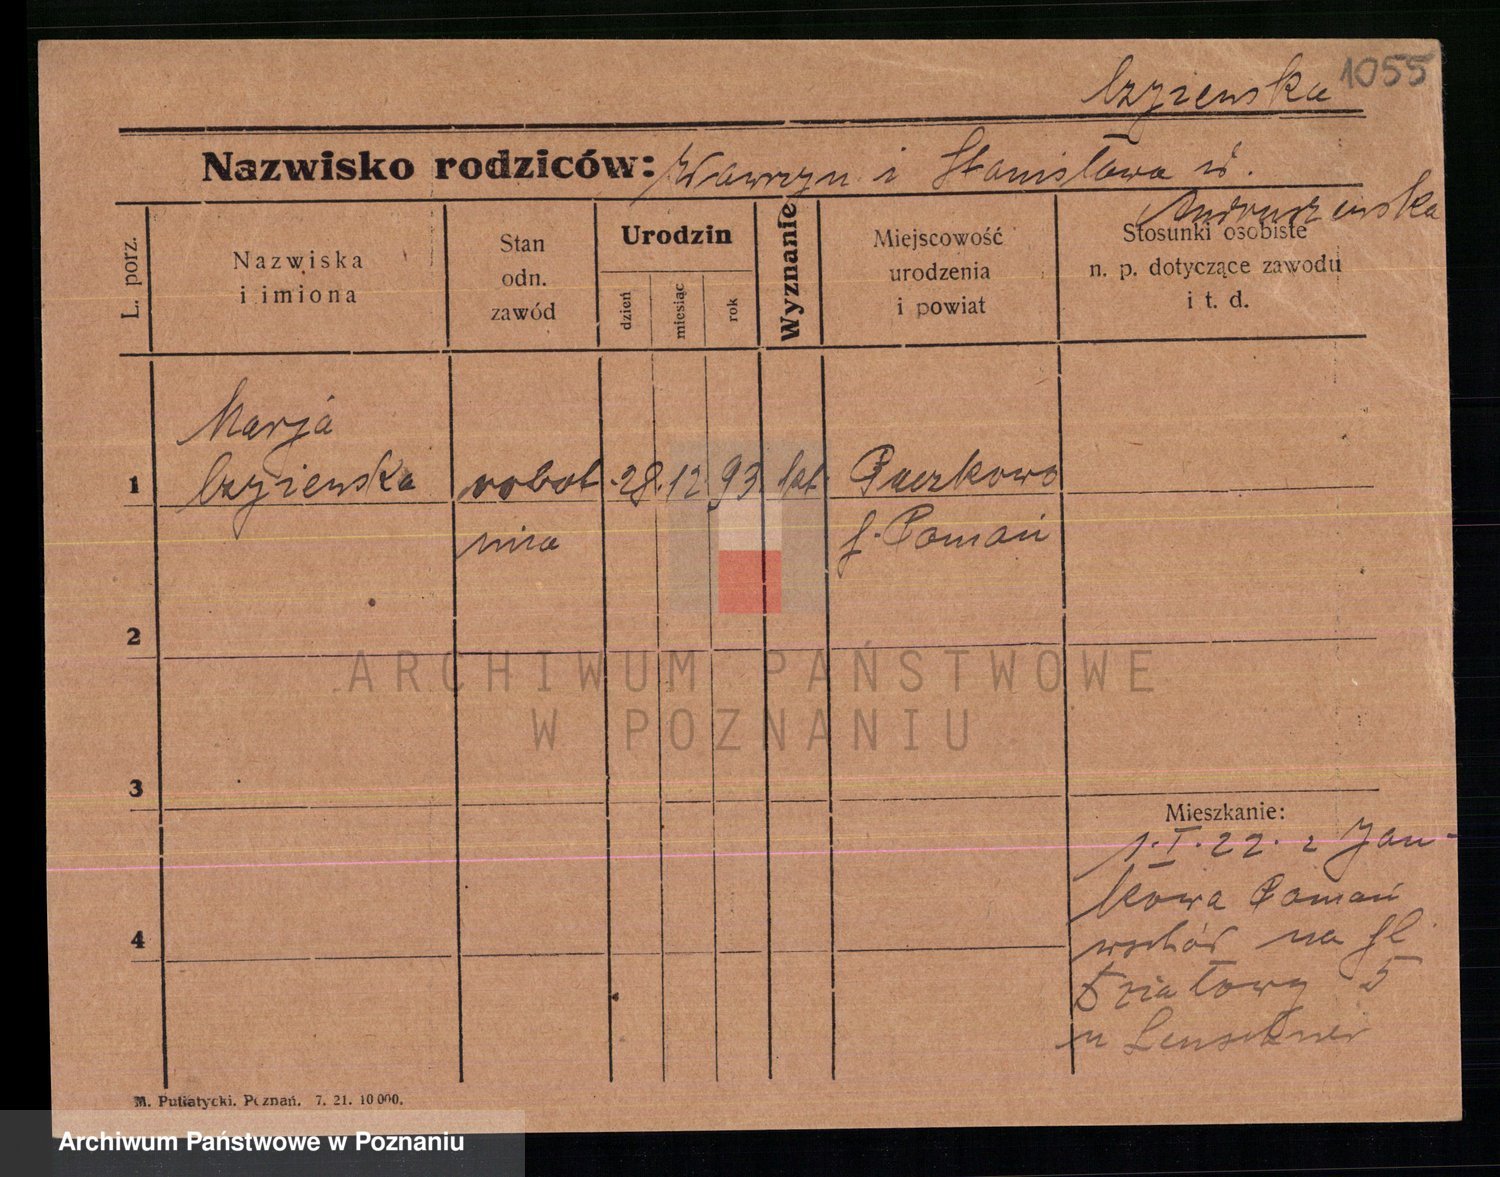 1055
Czyżewska
Nazwisko rodziców: Wawrzyn i Stanisława ur.
Andruszewska
L. porz.
Nazwiska
i imiona
Stan
odn.
zawód
Urodzin
dzień
miesiąc
rok
Wyznanie
Miejscowość
urodzenia
i powiat
Stosunki osobiste
n. p. dotyczące zawodu
i t. d.
Marja
1 Czyżewska robot 28. 12 93 kat. Paczkowo
nica p. Poznań
2
3
4
Mieszkanie:
1. I. 22. z Jan-
kowa Poznań
wschód na pl.
Działowy 5
u Leuschner
M. Putiatycki, Poznań. 7. 21. 10 000.
ARCHIWUM PAŃSTWOWE
W POZNANIU
Archiwum Państwowe w Poznaniu